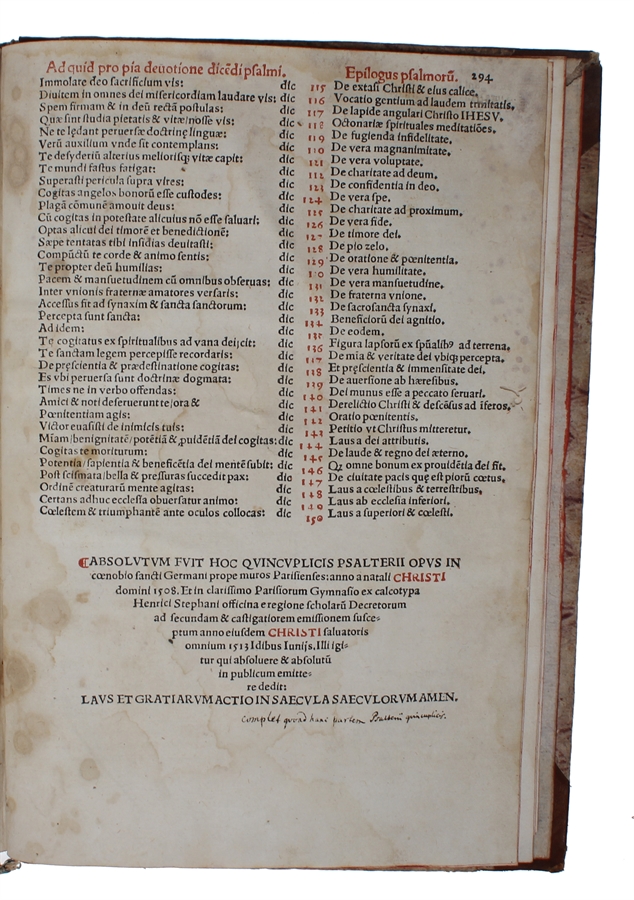 Ad quid pro pia deuotione dicẽdi psalmi. Epilogus psalmorũ. 294
Immolare deo sacrificium vis: dic 115 De extasi Christi & eius calice.
Diuitem in omnes dei misericordiam laudare vis: dic 116 Vocatio gentium ad laudem trinitatis.
Spem firmam & in deũ rectã postulas: dic 117 De lapide angulari Christo IHESV.
Quæ sint studia pietatis & vitæ/nosse vis: dic 118 Octonariæ spirituales meditatiões.
Ne te lędant peruersæ doctrinę linguæ: dic 119 De fugienda infidelitate.
Verũ auxilium vnde sit contemplans: dic 120 De vera magnanimitate.
Te desyderiũ alterius meliorisq; vitæ capit: dic 121 De vera voluptate.
Te mundi fastus fatigat: dic 122 De charitate ad deum.
Superasti pericula supra vires: dic 123 De confidentia in deo.
Cogitas angelos bonorũ esse custodes: dic 124 De vera spe.
Plagã cõmunẽ amouit deus: dic 125 De charitate ad proximum.
Cũ cogitas in potestate alicuius nõ esse saluari: dic 126 De vera fide.
Optas alicui dei timorẽ et benedictionẽ: dic 127 De timore dei.
Sæpe tentatas tibi insidias deuitasti: dic 128 De pio zelo.
Compũctũ te corde & animo sentis: dic 129 De oratione & pœnitentia.
Te propter deũ humilias: dic 130 De vera humilitate.
Pacem & mansuetudinem cũ omnibus obseruas: dic 131 De vera mansuetudine.
Inter vnionis fraternæ amatores versaris: dic 132 De fraterna vnione.
Accessus fit ad synaxim & sancta sanctorum: dic 133 De sacrosancta synaxi.
Percepta sunt sancta: dic 134 Beneficiorũ dei agnitio.
Ad idem: dic 135 De eodem.
Te cogitatus ex spiritualibus ad vana deijcit: dic 136 Figura lapsorũ ex spũalibꝰ ad terrena.
Te sanctam legem percepisse recordaris: dic 137 De mia & veritate dei vbiq; percepta.
De pręscientia & prædestinatione cogitas: dic 138 Et pręscientia & immensitate dei.
Es vbi peruersa sunt doctrinæ dogmata: dic 139 De auersione ab hæresibus.
Times ne in verbo offendas: dic 140 Dei munus esse a peccato seruari.
Amici & noti deseruerunt te/ora & dic 141 Derelictio Christi & descẽsus ad iferos.
Pœnitentiam agis: dic 142 Oratio pœnitentis.
Victor euasisti de inimicis tuis: dic 143 Petitio vt Christus mitteretur.
Miam/benignitatẽ/potẽtiã & ,puidẽtiã dei cogitas: dic 144 Laus a dei attributis.
Cogitas te moriturum: dic 145 De laude & regno dei æterno.
Potentia/sapientia & beneficẽtia dei mentẽ subit: dic 146 Qꝫ omne bonum ex prouidẽtia dei fit.
Post scismata/bella & pressuras succedit pax: dic 147 De ciuitate pacis quę est piorũ cœtus.
Ordinẽ creaturarũ mente agitas: dic 148 Laus a cœlestibus & terrestribus.
Certans adhuc ecclesia obuersatur animo: dic 149 Laus ab ecclesia inferiori.
Cœlestem & triumphantẽ ante oculos collocas: dic 150 Laus a superiori & cœlesti.
¶ABSOLVTVM FVIT HOC QVINCVPLICIS PSALTERII OPVS IN
cœnobio sancti Germani prope muros Parisienses: anno a natali CHRISTI
domini 1508. Et in clarissimo Parisiorum Gymnasio ex calcotypa
Henrici Stephani officina e regione scholarũ Decretorum
ad secundam & castigatiorem emissionem susce-
ptum anno eiusdem CHRISTI saluatoris
omnium 1513 Idibus Iunijs. Illi igi-
tur qui absoluere & absolutũ
in publicum emitte-
re dedit:
LAVS ET GRATIARVM ACTIO IN SAECVLA SAECVLORVM AMEN.
Complet quoad hanc partem Psalterii quincuplicis.